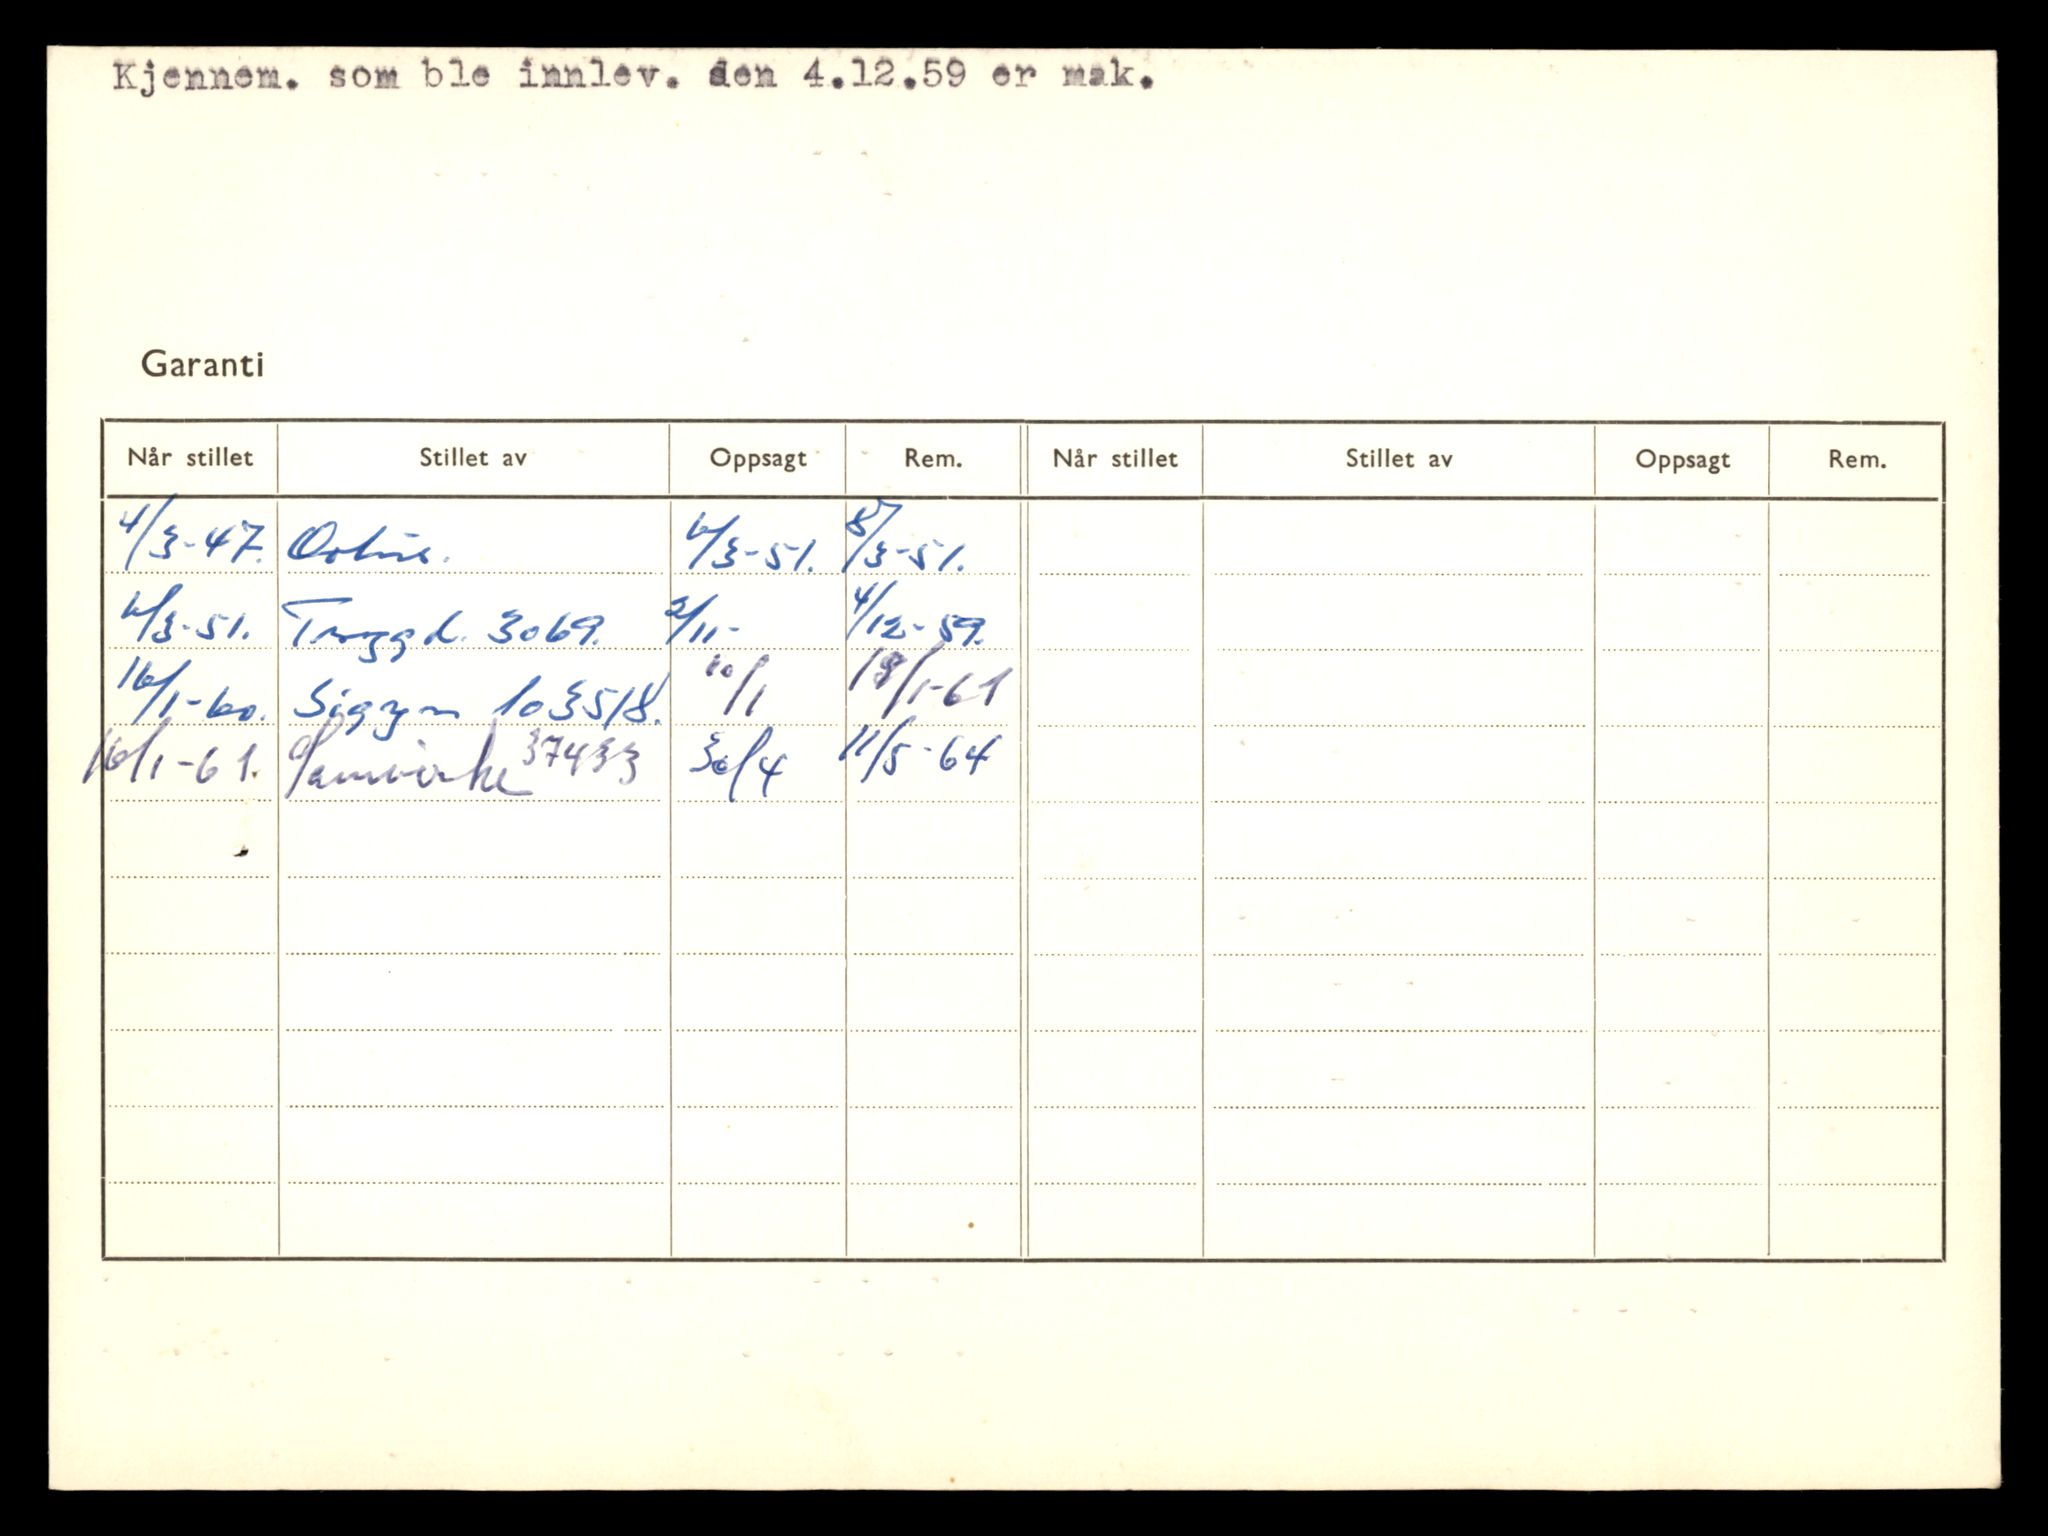 Kjennem. som ble innlev. den 4.12.59 er mak.
Garanti
Når stillet Stillet av Oppsagt Rem. Når stillet Stillet av Oppsagt Rem.
4/3-47. 6/3-51. 8/3-51.
6/3-51. Trygd. 3069. 2/11- 4/12-59.
16/1-60. Sigyn 103518. 10/1 18/1-61
16/1-61. Samvirke 37433 30/4 11/5-64